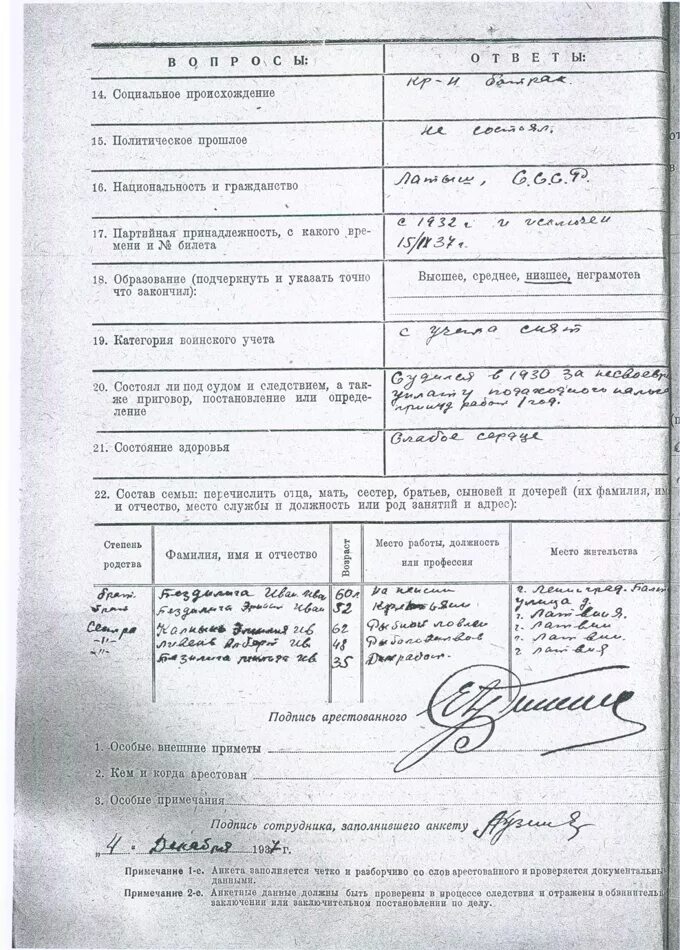 ВОПРОСЫ: ОТВЕТЫ:
14. Социальное происхождение
кр-н батрак.
15. Политическое прошлое
не состоял.
16. Национальность и гражданство
Латыш, С.С.С.Р.
17. Партвйная принадлежность, с какого вре-
мени и № билета
с 1932 г. и исключен
15/IX 37 г.
18. Образование (подчеркнуть и указать точно
что закончил):
Высшее, среднее, низшее, неграмотен
19. Категория воинского учета
с учета снят
20. Состоял ли под судом и следствием, а так-
же приговор, постановление или опреде-
ление
Судился в 1930 за несвоевр
уплату подоходного налога
принуд работ 1 год.
21. Состояние здоровья
Слабое сердце
22. Состав семьи: перечислить отца, мать, сестер, братьев, сыновей и дочерей (их фамилия, им
и отчество, место службы и должность или род занятий и адрес):
Степень родства
Фамилия, имя и отчество
Возраст
Место работы, должность или профессия
Место жительства
брат Иван Ива 60л на пенсии г. Ленинград.
улица д.
брат Иван 52 Крестьянин г. Латвия.
Сестра Ив 62 Рыбной ловли г. Латвии
-"- Ив 48 г. Латвии.
-"- Ив 35 г. Латвия
Подпись арестованного
1. Особые внешние приметы
2. Кем и когда арестован
3. Особые примечания
Подпись сотрудника, заполнившего анкету
„4" Декабря 1937 г.
Примечание 1-е. Анкета заполняется четко и разборчиво со слов арестованного и проверяется документальны
данными.
Примечание 2-е. Анкетные данные должны быть проверены в процессе следствия и отражены в обвинитель
заключении или заключительном постановлении по делу.